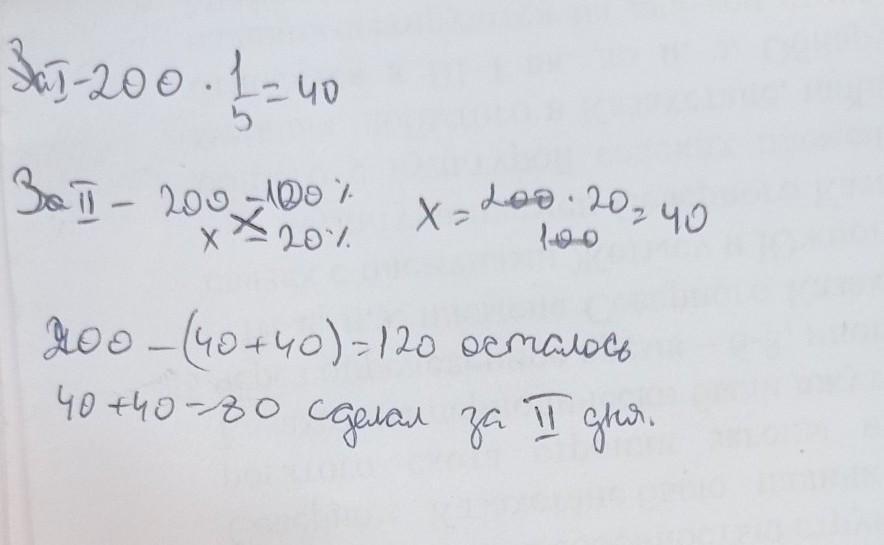 За I - 200 · 1/5 = 40
За II - 200 - 100% x = 200 · 20 / 100 = 40
x - 20%
200 - (40+40) = 120 осталось
40+40=80 сделал за II дня.